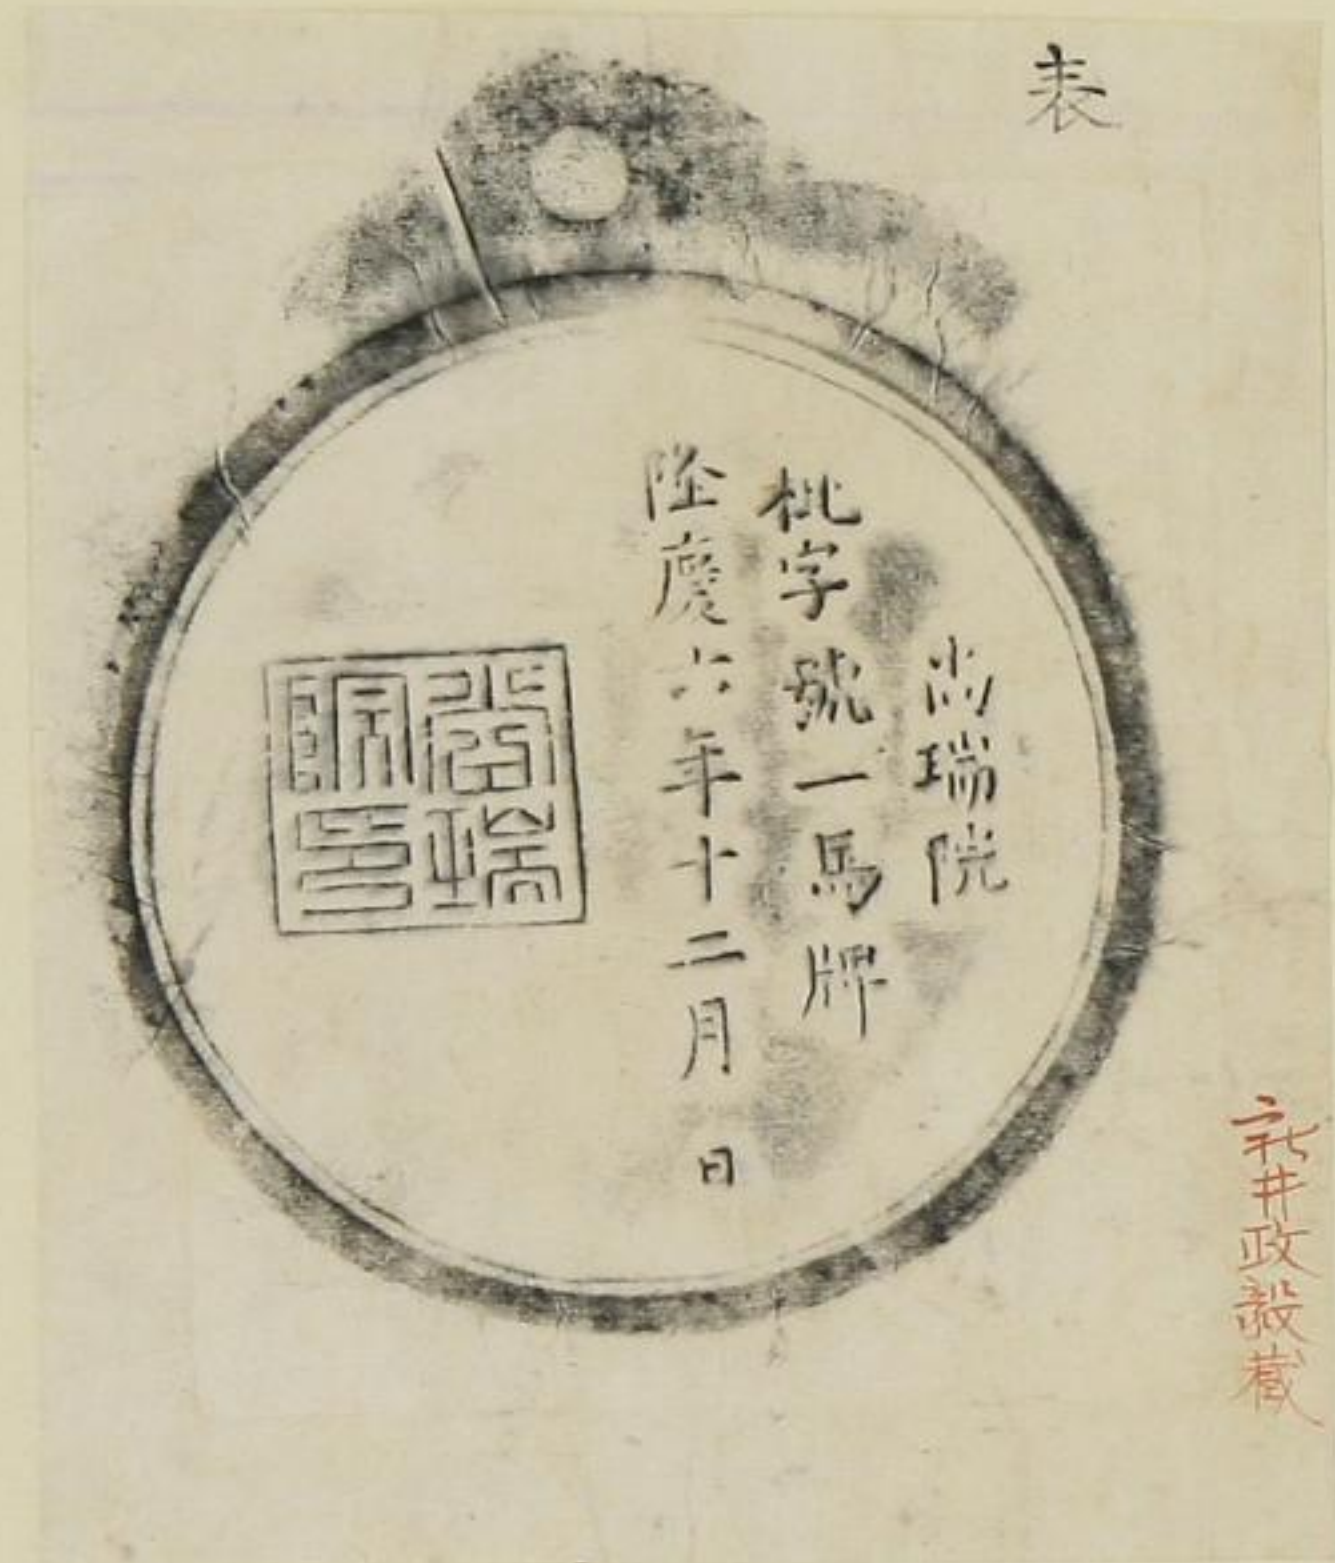 表
尚瑞院
字號一馬牌
隆慶六年十二月　日
尚瑞
院印
新井政毅蔵